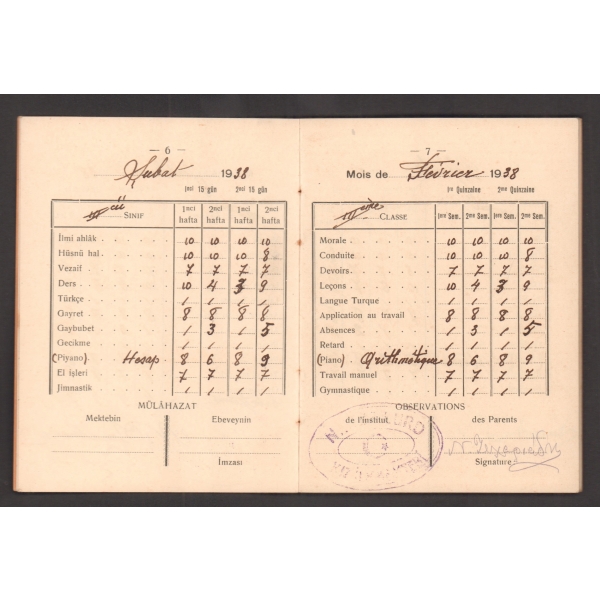 — 6 —
Şubat 1938
1nci 15 gün 2nci 15 gün
III cü SINIF 1nci hafta 2nci hafta 1nci hafta 2nci hafta
İlmi ahlâk 10 10 10 10
Hüsnü hal 10 10 10 8
Vezaif 7 7 7 7
Ders 10 4 3 9
Türkçe / / / /
Gayret 8 8 8 8
Gaybubet / 3 / 5
Gecikme / / / /
(Piyano) Hesap 8 6 8 9
El işleri 7 7 7 7
Jimnastik / / / /
MÜLÂHAZAT
Mektebin Ebeveynin
İmzası
— 7 —
Mois de Février 1938
1re Quinzaine 2me Quinzaine
III ème CLASSE 1ere Sem. 2me Sem. 1ere Sem. 2me Sem.
Morale 10 10 10 10
Conduite 10 10 10 8
Devoirs 7 7 7 7
Leçons 10 4 3 9
Langue Turque / / / /
Application au travail 8 8 8 8
Absences / 3 / 5
Retard / / / /
(Piano) Arithmétique 8 6 8 9
Travail manuel 7 7 7 7
Gymnastique / / / /
OBSERVATIONS
de l'institut. des Parents
Signature